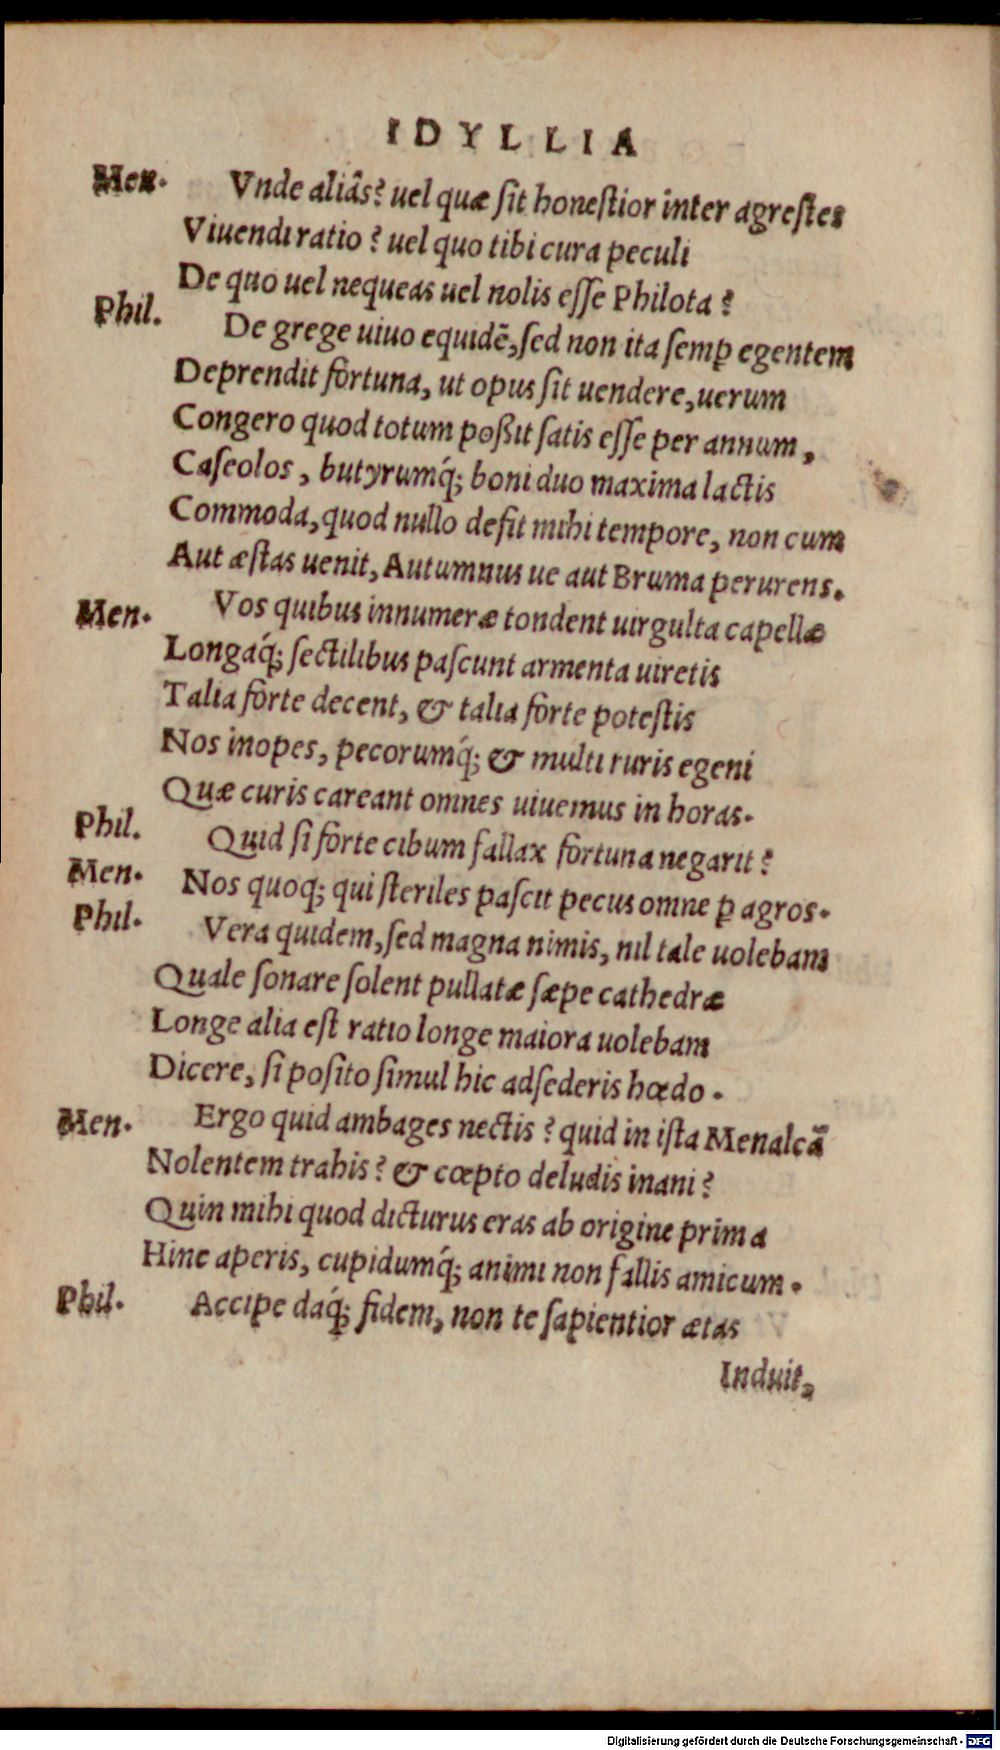 IDYLLIA
Men. Vnde aliâs? uel quæ ſit honeſtior inter agreſtes
Viuendi ratio? uel quo tibi cura peculi
De quo uel nequeas uel nolis eſſe Philota?
Phil. De grege uiuo equidẽ, ſed non ita ſemꝑ egentem
Deprendit fortuna, ut opus ſit uendere, uerum
Congero quod totum poßit ſatis eſſe per annum,
Caſeolos, butyrumq́; boni duo maxima lactis
Commoda, quod nullo defit mihi tempore, non cum
Aut æſtas uenit, Autumnus ue aut Bruma perurens.
Men. Vos quibus innumeræ tondent uirgulta capellæ
Longaq́; ſectilibus paſcunt armenta uiretis
Talia forte decent, & talia forte poteſtis
Nos inopes, pecorumq́; & multi ruris egeni
Quæ curis careant omnes uiuemus in horas.
Phil. Quid ſi forte cibum fallax fortuna negarit?
Men. Nos quoq; qui ſteriles paſcit pecus omne ꝑ agros.
Phil. Vera quidem, ſed magna nimis, nil tale uolebam
Quale ſonare ſolent pullatæ ſæpe cathedræ
Longe alia eſt ratio longe maiora uolebam
Dicere, ſi poſito ſimul hic adſederis hœdo.
Men. Ergo quid ambages nectis? quid in iſta Menalcã
Nolentem trahis? & cœpto deludis inani?
Quin mihi quod dicturus eras ab origine prima
Hinc aperis, cupidumq́; animi non fallis amicum.
Phil. Accipe daq́; fidem, non te ſapientior ætas
Induit,
Digitalisierung gefördert durch die Deutsche Forschungsgemeinschaft - DFG